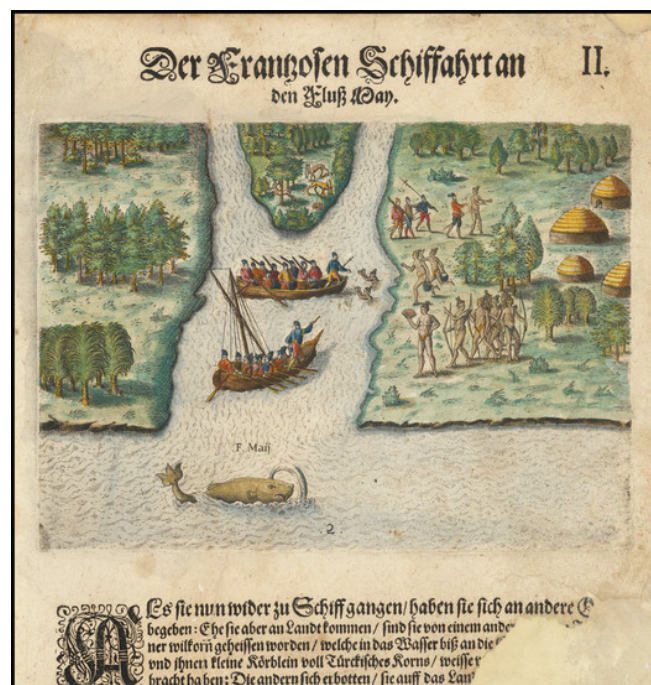 Der Frantzosen Schiffahrt an
II.
den Fluß May.
F. Maij
2
Als sie nun wider zu Schiff gangen / haben sie sich an andere
begeben: Ehe sie aber an Landt kommen / sind sie von einem
ner wilkom̄ geheissen worden / welche in das Wasser biß an die
vnd ihnen kleine Körblein voll Türckisches Korns / weisse
bracht haben: Die andern sich erbotten / sie auff das